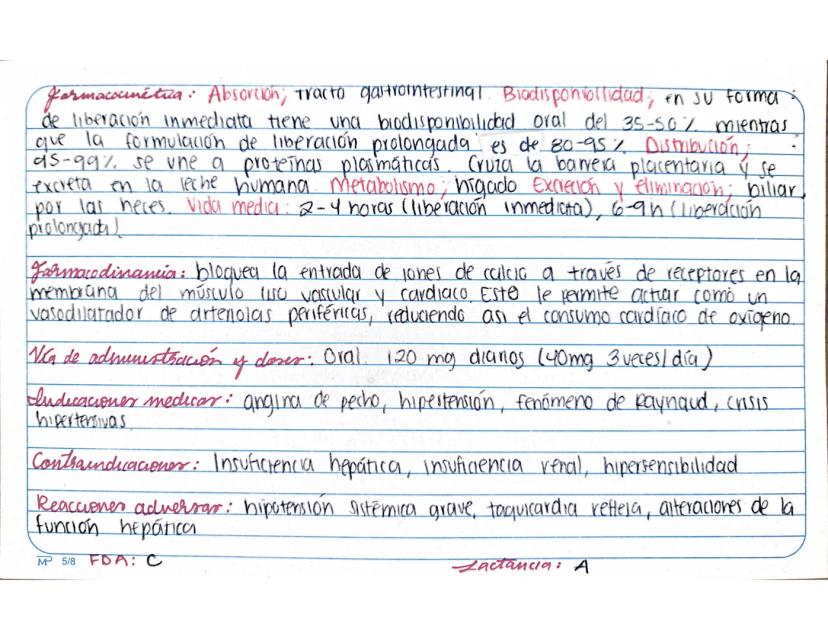 Farmacocinética: Absorción; Tracto gastrointestinal. Biodisponibilidad; en su forma
de liberación inmediata tiene una biodisponibilidad oral del 35-50% mientras
que la formulación de liberación prolongada es de 80-95%. Distribución;
95-99% se une a proteínas plasmáticas. Cruza la barrera placentaria y se
excreta en la leche humana. Metabolismo; hígado Excreción y eliminación; biliar,
por las heces. Vida media: 2-4 horas (liberación inmediata), 6-9h (liberación
prolongada).
Farmacodinamia: bloquea la entrada de iones de calcio a través de receptores en la
membrana del músculo liso vascular y cardiaco. Esto le permite actuar como un
vasodilatador de arteriolas periféricas, reduciendo asi el consumo cardíaco de oxígeno.
Vía de administración y dosis: Oral. 120 mg diarios (40mg 3 veces/día)
Indicaciones medicas: angina de pecho, hipertensión, fenómeno de Raynaud, crisis
hipertensivas.
Contraindicaciones: Insuficiencia hepática, insuficiencia renal, hipersensibilidad
Reacciones adversas: hipotensión sistémica grave, taquicardia refleja, alteraciones de la
función hepática
MP 5/8 FDA: C Lactancia: A